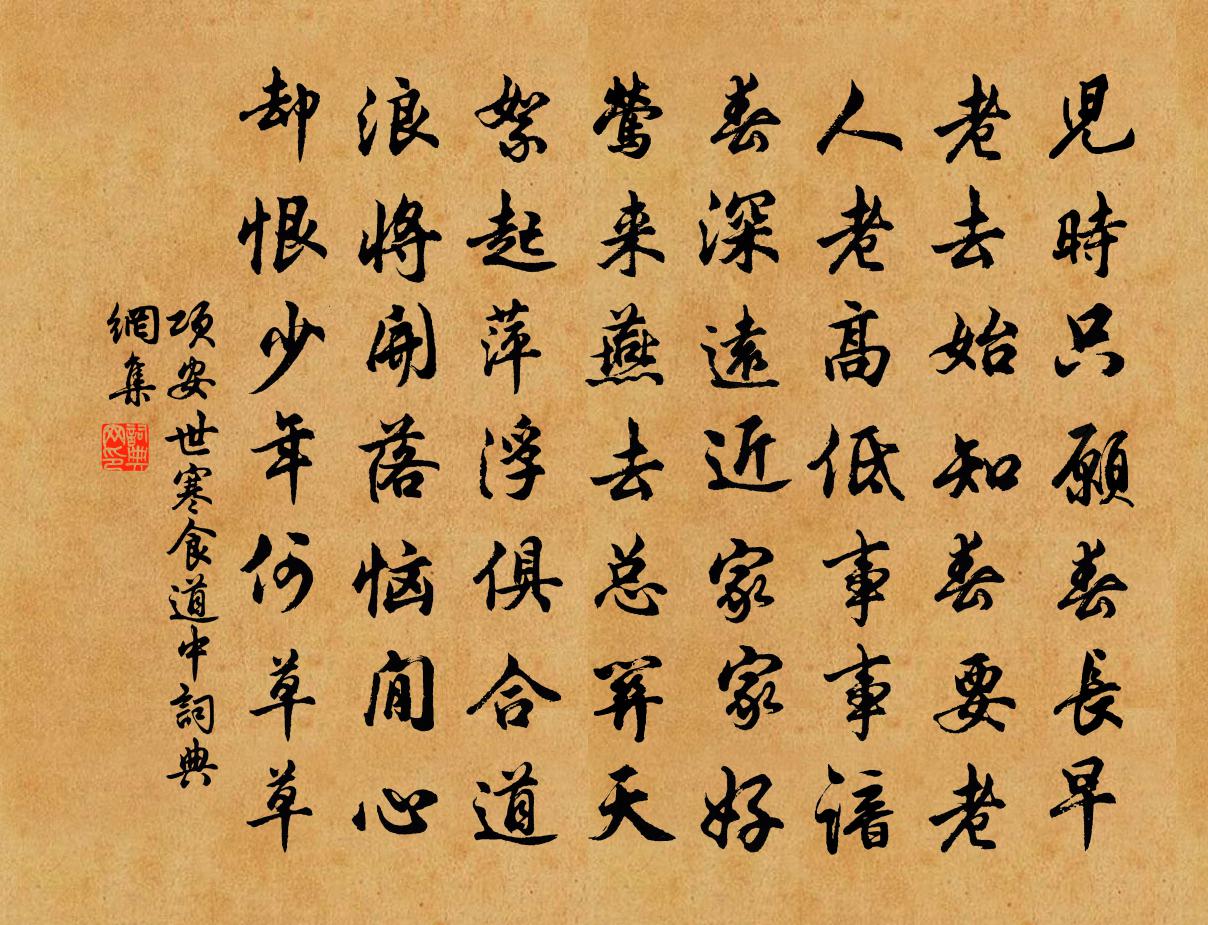 兒時只願春長早
老去始知春要老
人老高低事事諳
春深遠近家家好
鶯来燕去总關天
絮起萍浮俱合道
浪將開落恼閒心
却恨少年何草草
項安世寒食道中詞典
網集
詞典
网印